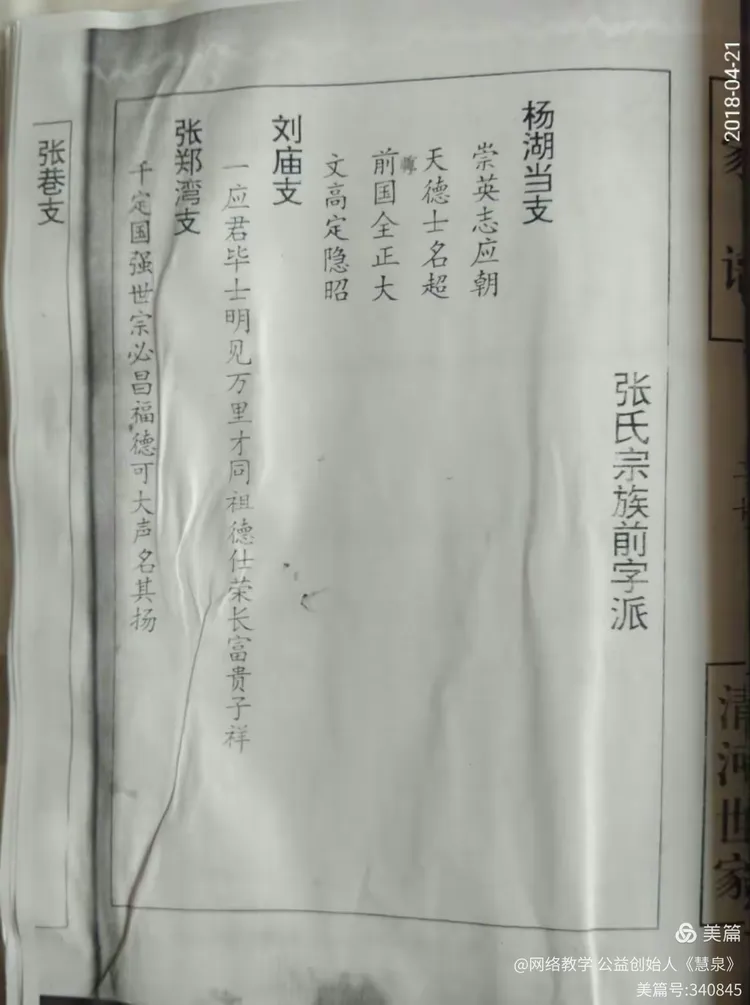 2018-04-21
张氏宗族前字派
杨湖当支
崇英志应朝
天德士名超
前国全正大
文高定隐昭
刘庙支
一应君毕士明见万里才同祖德仕荣长富贵子祥
张郑湾支
千定国强世宗必昌福德可大声名其扬
张巷支
清河世家
美篇
@网络教学 公益创始人《慧泉》
美篇号:340845